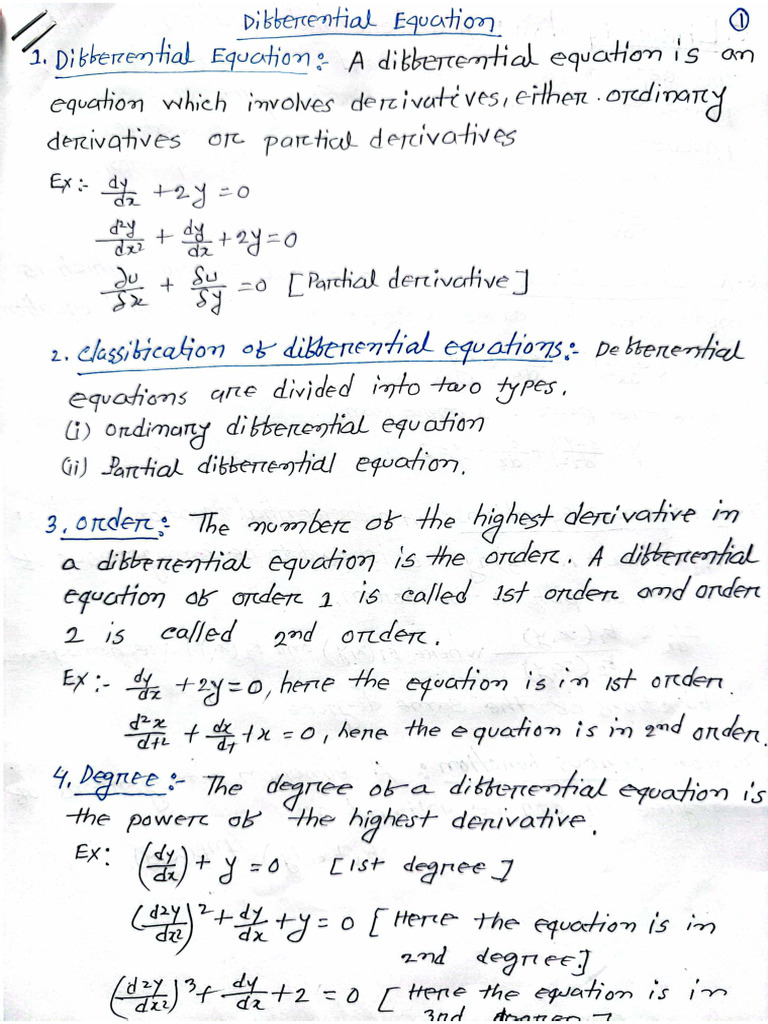 Differential Equation ①
1. Differential Equation:- A differential equation is an
equation which involves derivatives, either ordinary
derivatives or partial derivatives
Ex:- dy/dx + 2y = 0
d²y/dx² + dy/dx + 2y = 0
∂u/δx + δu/δy = 0 [Partial derivative]
2. Classification of differential equations:- Defferential
equations are divided into two types.
(i) Ordinary differential equation
(ii) Partial differential equation.
3. Order:- The number of the highest derivative in
a differential equation is the order. A differential
equation of order 1 is called 1st order and order
2 is called 2nd order.
Ex:- dy/dx + 2y = 0, here the equation is in 1st order.
d²x/dt² + dx/dt + x = 0, here the equation is in 2nd order.
4. Degree:- The degree of a differential equation is
the power of the highest derivative.
Ex: (dy/dx) + y = 0 [1st degree]
(d2y/dx2)² + dy/dx + y = 0 [Here the equation is in
2nd degree.]
(d2y/dx2)³ + dy/dx + 2 = 0 [Here the equation is in
3rd degree]